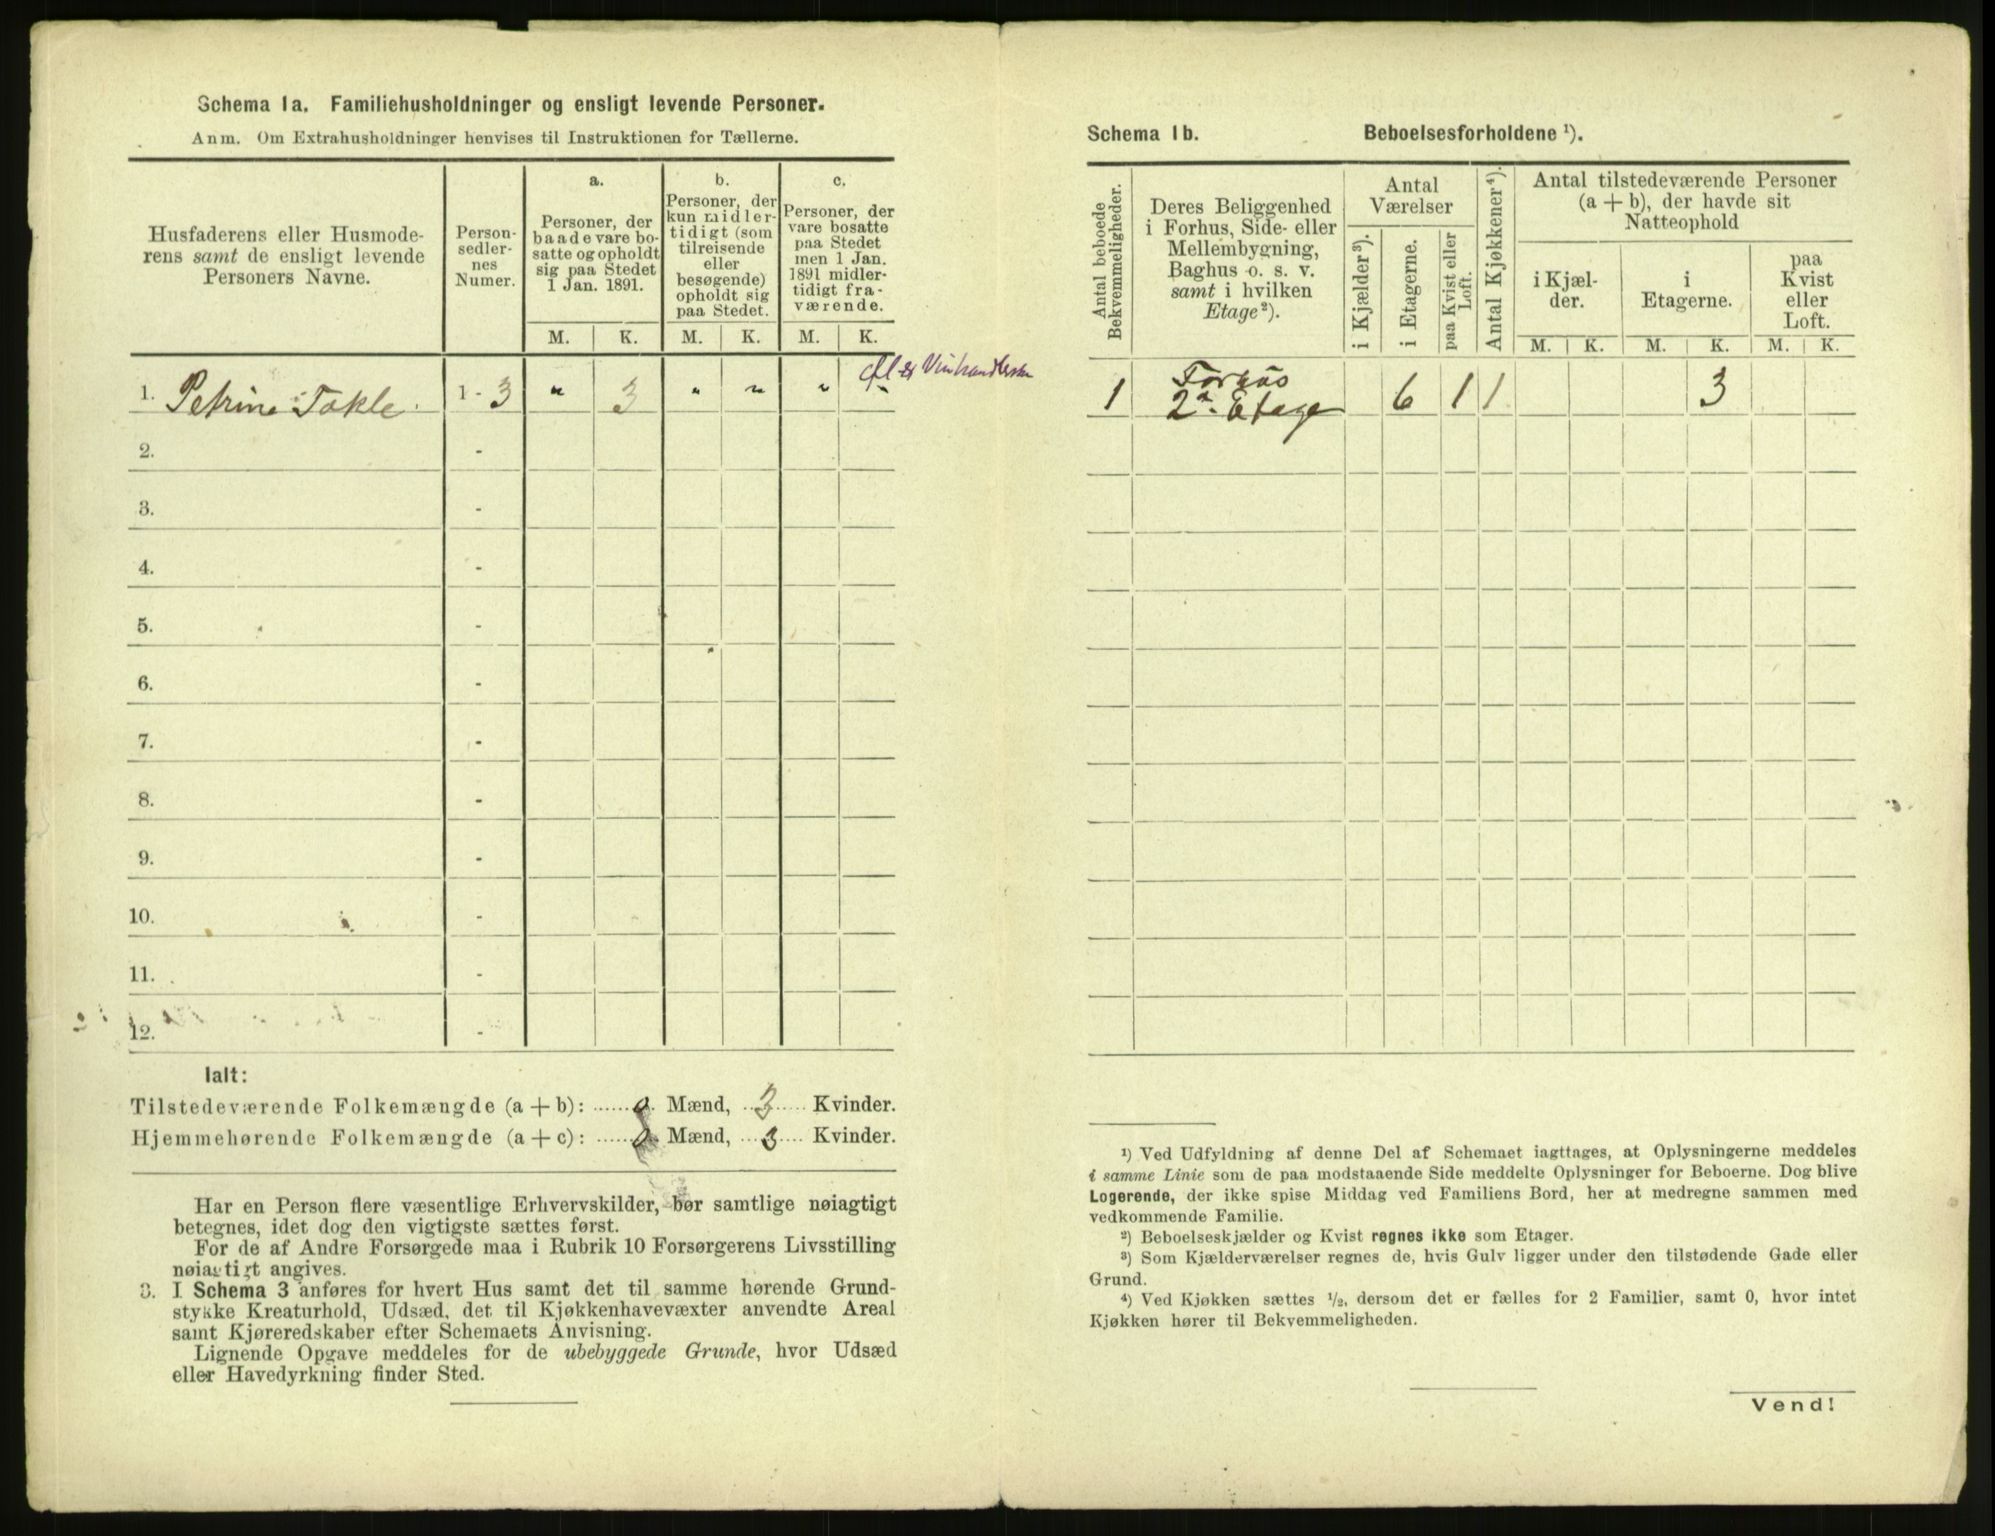 Schema 1a. Familiehusholdninger og ensligt levende Personer.
Anm. Om Extrahusholdninger henvises til Instruktionen for Tællerne.
Husfaderens eller Husmode-
rens samt de ensligt levende
Personers Navne.
Person-
sedler-
nes
Numer.
a.
Personer, der
baade vare bo-
satte og opholdt
sig paa Stedet
1 Jan. 1891.
b.
Personer, der
kun midler-
tidigt (som
tilreisende
eller
besøgende)
opholdt sig
paa Stedet.
c.
Personer, der
vare bosatte
paa Stedet
men 1 Jan.
1891 midler-
tidigt fra-
værende.
M. K. M. K. M. K.
1. Petrine Takle. 1 - 3 " 3 " " " "
2. -
3. -
4. -
5. -
6. -
7. -
8. -
9. -
10. -
11. -
12. -
Ialt:
Tilstedeværende Folkemængde (a + b): 0 Mænd, 3 Kvinder.
Hjemmehørende Folkemængde (a + c): 0 Mænd, 3 Kvinder.
Har en Person flere væsentlige Erhvervskilder, bør samtlige nøiagtigt
betegnes, idet dog den vigtigste sættes først.
For de af Andre Forsørgede maa i Rubrik 10 Forsørgerens Livsstilling
nøiagtigt angives.
3. I Schema 3 anføres for hvert Hus samt det til samme hørende Grund-
stykke Kreaturhold, Udsæd, det til Kjøkkenhavevæxter anvendte Areal
samt Kjøreredskaber efter Schemaets Anvisning.
Lignende Opgave meddeles for de ubebyggede Grunde, hvor Udsæd
eller Havedyrkning finder Sted.
Schema 1b. Beboelsesforholdene ¹).
Antal beboede
Bekvemmeligheder.
Deres Beliggenhed
i Forhus, Side- eller
Mellembygning,
Baghus o. s. v.
samt i hvilken
Etage ²).
Antal
Værelser
i Kjælder ³).
i Etagerne.
paa Kvist eller
Loft.
Antal Kjøkkener ⁴).
Antal tilstedeværende Personer
(a + b), der havde sit
Natteophold
i Kjæl-
der.
i
Etagerne.
paa
Kvist
eller
Loft.
M. K. M. K. M. K.
1 Forhus 6 1 1 3
2den Etage
¹) Ved Udfyldning af denne Del af Schemaet iagttages, at Oplysningerne meddeles
i samme Linie som de paa modstaaende Side meddelte Oplysninger for Beboerne. Dog blive
Logerende, der ikke spise Middag ved Familiens Bord, her at medregne sammen med
vedkommende Familie.
²) Beboelseskjælder og Kvist regnes ikke som Etager.
³) Som Kjælderværelser regnes de, hvis Gulv ligger under den tilstødende Gade eller
Grund.
⁴) Ved Kjøkken sættes ½, dersom det er fælles for 2 Familier, samt 0, hvor intet
Kjøkken hører til Bekvemmeligheden.
Vend!